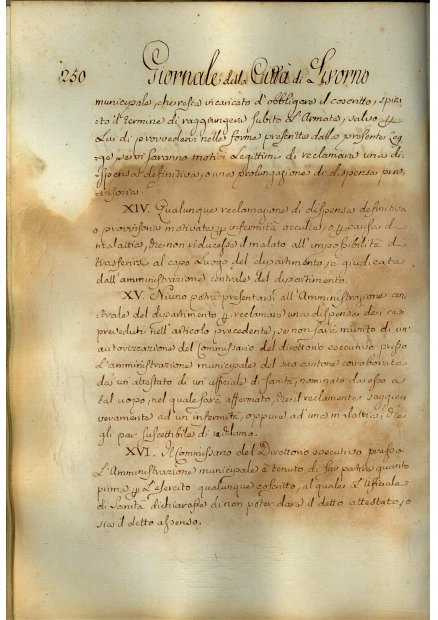 250 Giornale della Città di Livorno
municipale, che resta incaricato d'obbligare il coscritto, spira-
to il termine di raggiungere subito l'Armata, salvo p
Lui di provvedersi nelle forme prescritte dalla presente Leg-
ge, se vi saranno motivi Legittimi di reclamare una di-
spensa definitiva, o una prolungazione di dispensa prov-
visoria
XIV. Qualunque reclamazione di dispensa definitiva
o provvisoria motivata p infermità occulta, o p causa di
malattia, che non riducesse il malato all'impossibilità di
trasferirsi al capo Luogo del dipartimento sa giudicata
dall'amministrazione centrale del dipartimento.
XV. Niuno potrà presentarsi all'Amministrazione cen-
trale del dipartimento p reclamare una dispensa dei casi
preveduti nell'articolo precedente, se non sarà munito di un'
autorizzazione del Commissario del direttorio executivo presso
l'amministrazione municipale del suo cantone corroborata
da un attestato di un ufficiale di Sanità, nominato da esso a
tal uopo, nel quale sarà affermato, che il reclamante soggiace
veramente ad un infermità, oppure ad una malattia, che
gli par suscettibile di
XVI. Il Commissario del Direttorio executivo presso
l'Amministrazione municipale è tenuto di far partire quanto
prima p l'esercito qualunque coscritto, al quale l'Ufficiale
di Sanità dichiarasse di non poter dare il detto attestato, o
sia il detto assenso.